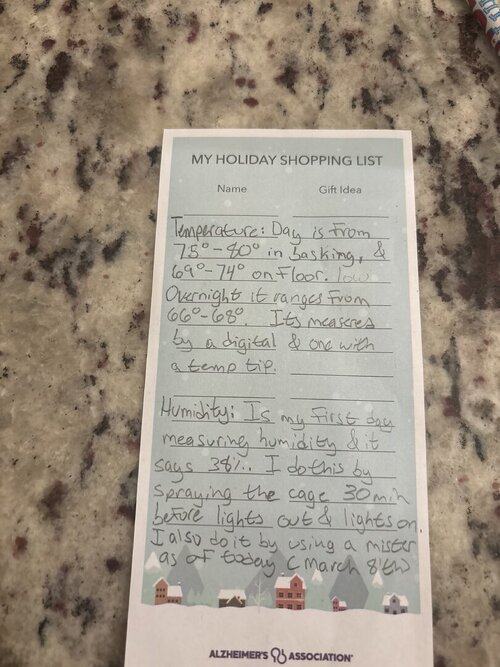 MY HOLIDAY SHOPPING LIST
Name Gift Idea
Temperature: Day is from
75°-80° in basking, &
69°-74° on floor. low
Overnight it ranges from
66°-68°. Its measeres
by a digital & one with
a temp tip.
Humidity: Is my first day
measuring humidity & it
says 38%. I do this by
spraying the cage 30 min
before lights out & lights on.
I also do it by using a mister
as of today (March 8'th)
ALZHEIMER'S ASSOCIATION®